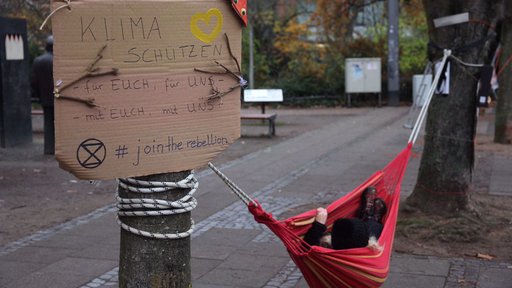 KLIMA
SCHÜTZEN
- für EUCH, für UNS -
- mit EUCH, mit UNS! -
# jointhe rebellion